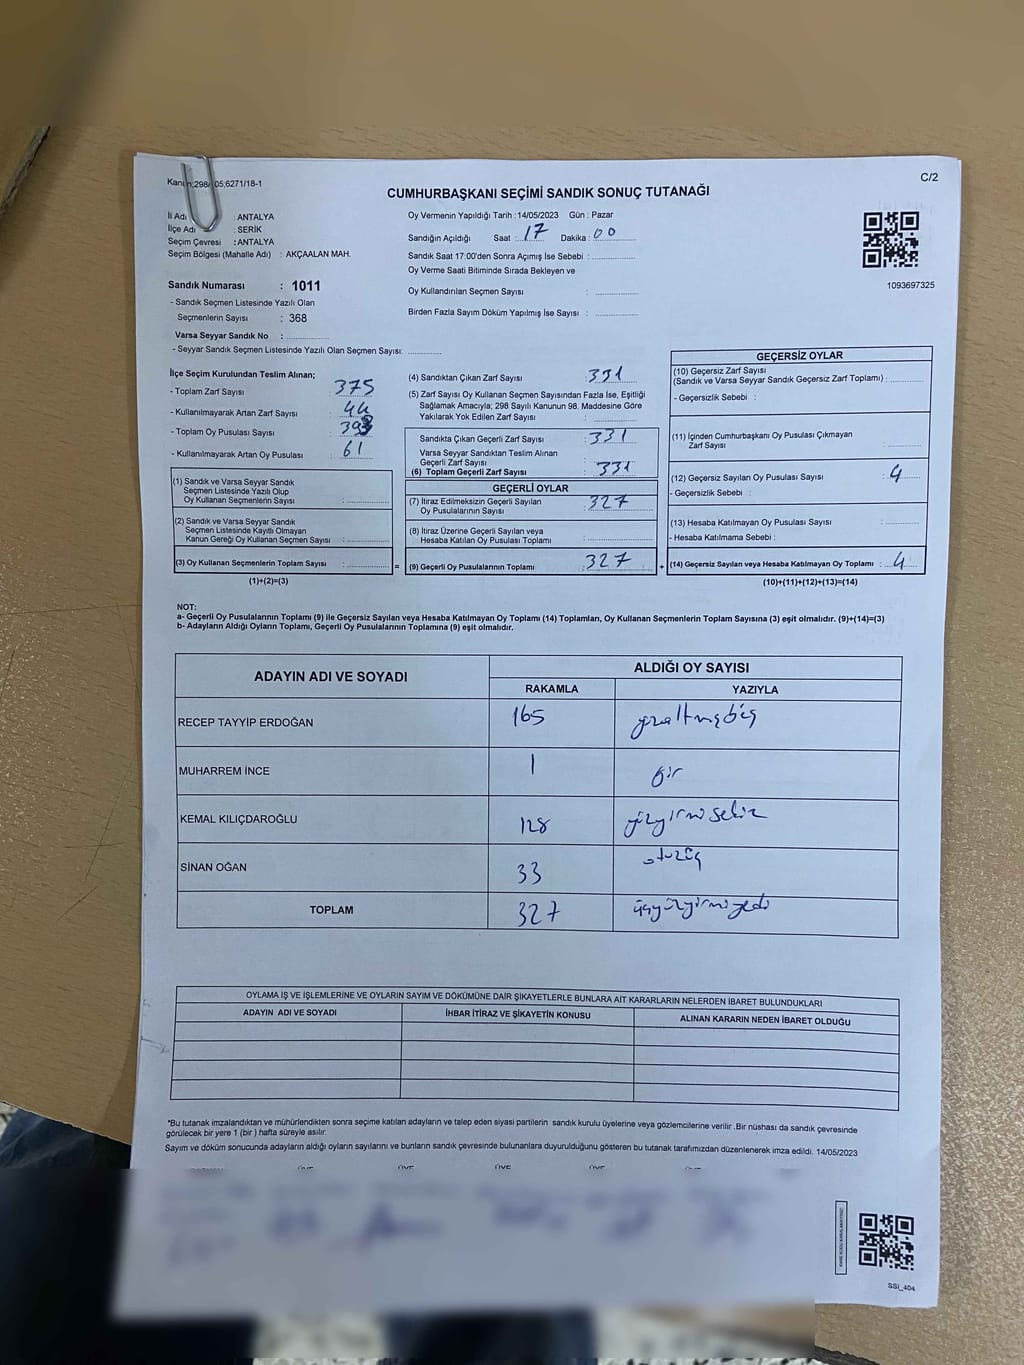 Kanun;298/ 05;6271/18-1
C/2
CUMHURBAŞKANI SEÇİMİ SANDIK SONUÇ TUTANAĞI
İl Adı : ANTALYA
İlçe Adı : SERİK
Seçim Çevresi : ANTALYA
Seçim Bölgesi (Mahalle Adı) : AKÇAALAN MAH.
Oy Vermenin Yapıldığı Tarih : 14/05/2023 Gün : Pazar
Sandığın Açıldığı Saat : 17 Dakika : 00
Sandık Saat 17:00'den Sonra Açımış İse Sebebi :
Oy Verme Saati Bitiminde Sırada Bekleyen ve
Oy Kullandırılan Seçmen Sayısı :
Birden Fazla Sayım Döküm Yapılmış İse Sayısı :
1093697325
Sandık Numarası : 1011
- Sandık Seçmen Listesinde Yazılı Olan
Seçmenlerin Sayısı : 368
Varsa Seyyar Sandık No :
- Seyyar Sandık Seçmen Listesinde Yazılı Olan Seçmen Sayısı:
İlçe Seçim Kurulundan Teslim Alınan;
- Toplam Zarf Sayısı : 375
- Kullanılmayarak Artan Zarf Sayısı : 44
- Toplam Oy Pusulası Sayısı :
- Kullanılmayarak Artan Oy Pusulası : 61
(1) Sandık ve Varsa Seyyar Sandık
Seçmen Listesinde Yazılı Olup
Oy Kullanan Seçmenlerin Sayısı :
(2) Sandık ve Varsa Seyyar Sandık
Seçmen Listesinde Kayıtlı Olmayan
Kanun Gereği Oy Kullanan Seçmen Sayısı :
(3) Oy Kullanan Seçmenlerin Toplam Sayısı : =
(1)+(2)=(3)
(4) Sandıktan Çıkan Zarf Sayısı : 331
(5) Zarf Sayısı Oy Kullanan Seçmen Sayısından Fazla İse, Eşitliği
Sağlamak Amacıyla; 298 Sayılı Kanunun 98. Maddesine Göre
Yakılarak Yok Edilen Zarf Sayısı :
Sandıkta Çıkan Geçerli Zarf Sayısı : 331
Varsa Seyyar Sandıktan Teslim Alınan
Geçerli Zarf Sayısı :
(6) Toplam Geçerli Zarf Sayısı : 331
GEÇERLİ OYLAR
(7) İtiraz Edilmeksizin Geçerli Sayılan
Oy Pusulalarının Sayısı : 327
(8) İtiraz Üzerine Geçerli Sayılan veya
Hesaba Katılan Oy Pusulası Toplamı :
(9) Geçerli Oy Pusulalarının Toplamı : 327 +
GEÇERSİZ OYLAR
(10) Geçersiz Zarf Sayısı
(Sandık ve Varsa Seyyar Sandık Geçersiz Zarf Toplamı) :
- Geçersizlik Sebebi :
(11) İçinden Cumhurbaşkanı Oy Pusulası Çıkmayan
Zarf Sayısı :
(12) Geçersiz Sayılan Oy Pusulası Sayısı : 4
- Geçersizlik Sebebi :
(13) Hesaba Katılmayan Oy Pusulası Sayısı :
- Hesaba Katılmama Sebebi :
(14) Geçersiz Sayılan veya Hesaba Katılmayan Oy Toplamı : 4
(10)+(11)+(12)+(13)=(14)
NOT:
a- Geçerli Oy Pusulalarının Toplamı (9) ile Geçersiz Sayılan veya Hesaba Katılmayan Oy Toplamı (14) Toplamları, Oy Kullanan Seçmenlerin Toplam Sayısına (3) eşit olmalıdır. (9)+(14)=(3)
b- Adayların Aldığı Oyların Toplamı, Geçerli Oy Pusulalarının Toplamına (9) eşit olmalıdır.
ADAYIN ADI VE SOYADI
ALDIĞI OY SAYISI
RAKAMLA YAZIYLA
RECEP TAYYİP ERDOĞAN 165 yüzaltmışbeş
MUHARREM İNCE 1 bir
KEMAL KILIÇDAROĞLU 128 yüzyirmisekiz
SİNAN OĞAN 33 otuzüç
TOPLAM 327 üçyüzyirmiyedi
OYLAMA İŞ VE İŞLEMLERİNE VE OYLARIN SAYIM VE DÖKÜMÜNE DAİR ŞİKAYETLERLE BUNLARA AİT KARARLARIN NELERDEN İBARET BULUNDUKLARI
ADAYIN ADI VE SOYADI İHBAR İTİRAZ VE ŞİKAYETİN KONUSU ALINAN KARARIN NEDEN İBARET OLDUĞU
*Bu tutanak imzalandıktan ve mühürlendikten sonra seçime katılan adayların ve talep eden siyasi partilerin sandık kurulu üyelerine veya gözlemcilerine verilir .Bir nüshası da sandık çevresinde
görülecek bir yere 1 (bir ) hafta süreyle asılır.
Sayım ve döküm sonucunda adayların aldığı oyların sayılarını ve bunların sandık çevresinde bulunanlara duyurulduğunu gösteren bu tutanak tarafımızdan düzenlenerek imza edildi. 14/05/2023
ÜYE ÜYE ÜYE ÜYE ÜYE
SSİ_404